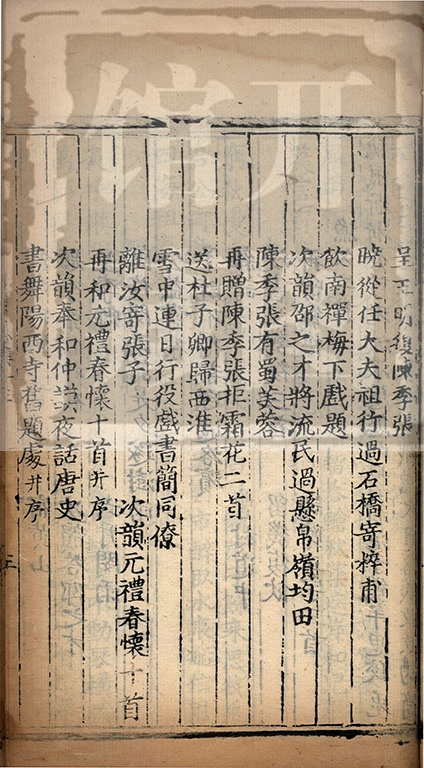 呈王明復陳季張
曉從任大夫祖行過石橋寄粹甫
飲南禪梅下戲題
次韻邵之才將流民過懸帛嶺均田
陳季張有蜀芙蓉
再贈陳季張拒霜花二首
送杜子卿歸西淮
雪中連日行役戲書簡同僚
離汝寄張子 次韻元禮春懷十首
再和元禮春懷十首并序
次韻奉和仲謨夜話唐史
書舞陽西寺舊題處并序
三